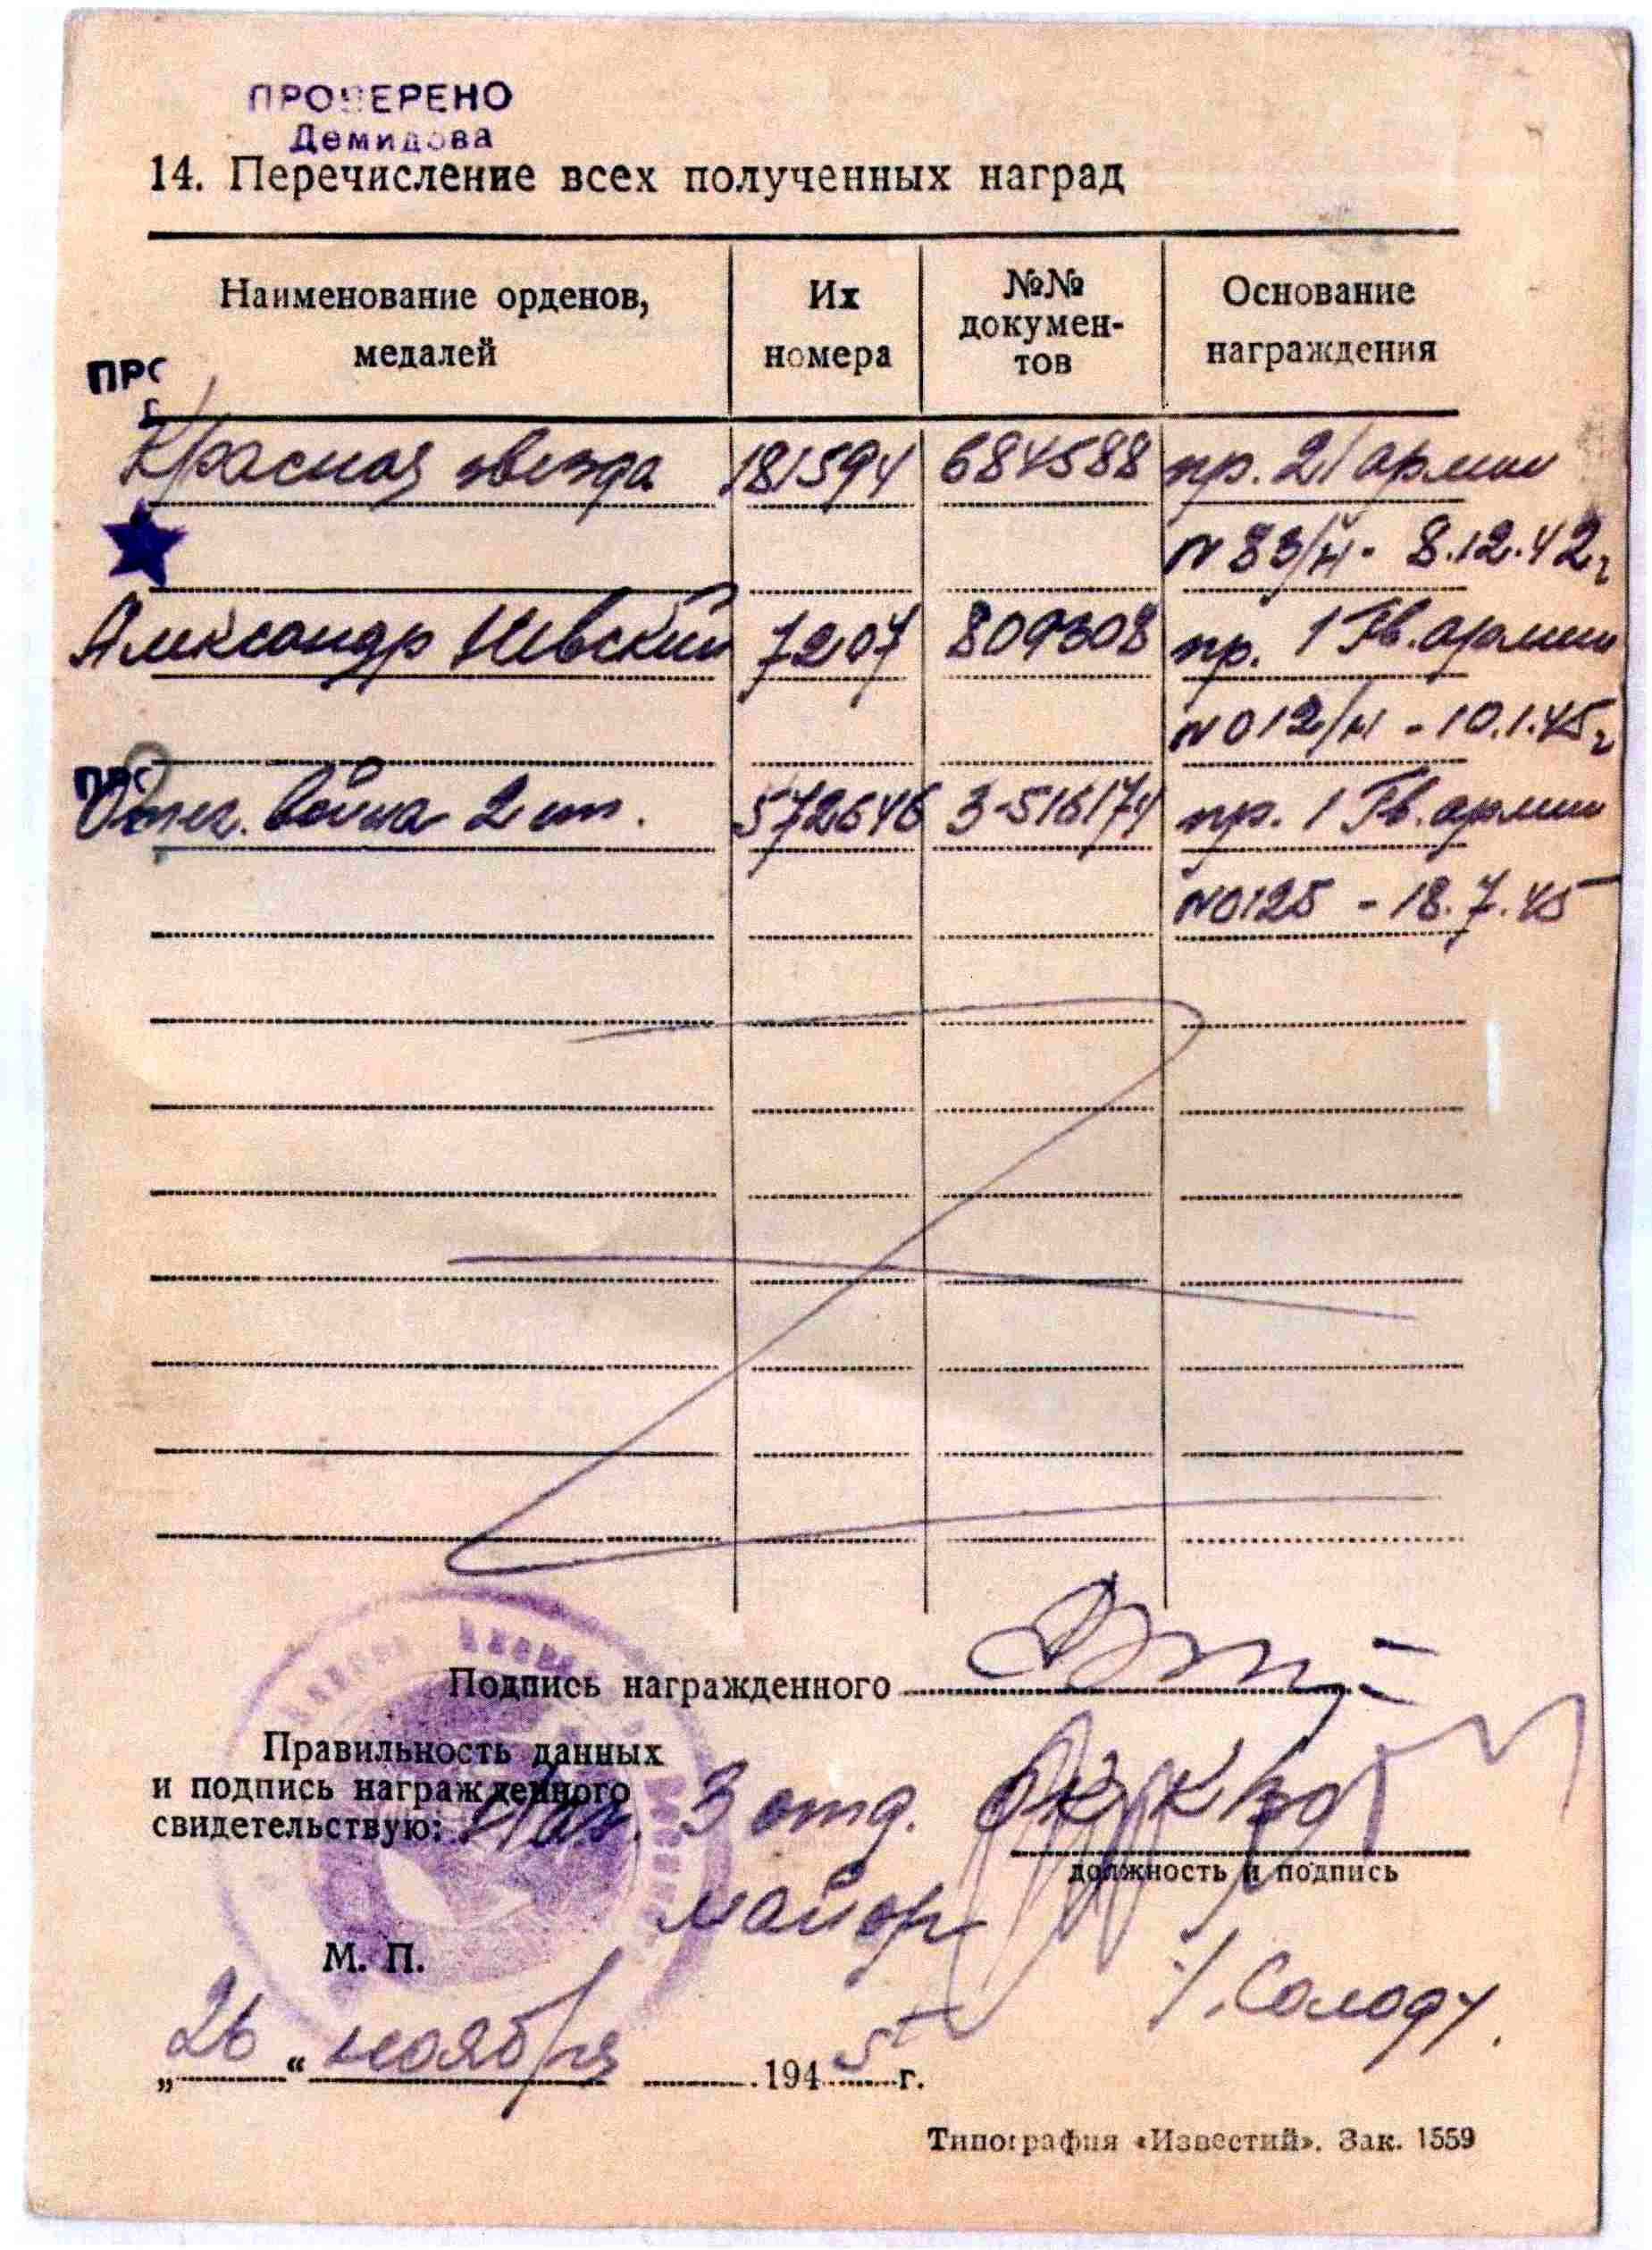 ПРОВЕРЕНО
Демидова
14. Перечисление всех полученных наград
Наименование орденов, медалей
Их номера
№№ докумен-тов
Основание награждения
ПРО
Красная звезда 181594 684588 пр. 21 армии
N 83/н - 8.12.42г
Александр Невский 7207 809308 пр. 1 Гв. армии
N 012/н - 10.1.45г
ПРО
Отеч. война 2 ст. 572646 3-516174 пр. 1 Гв. армии
N0125 - 18.7.45
Подпись награжденного
Правильность данных
и подпись награжденного
свидетельствую: Нач. 3 отд. ОК КВО
должность и подпись
майор
/. Солоду
М. П.
„26“ ноября 1945 г.
Типография «Известий». Зак. 1559